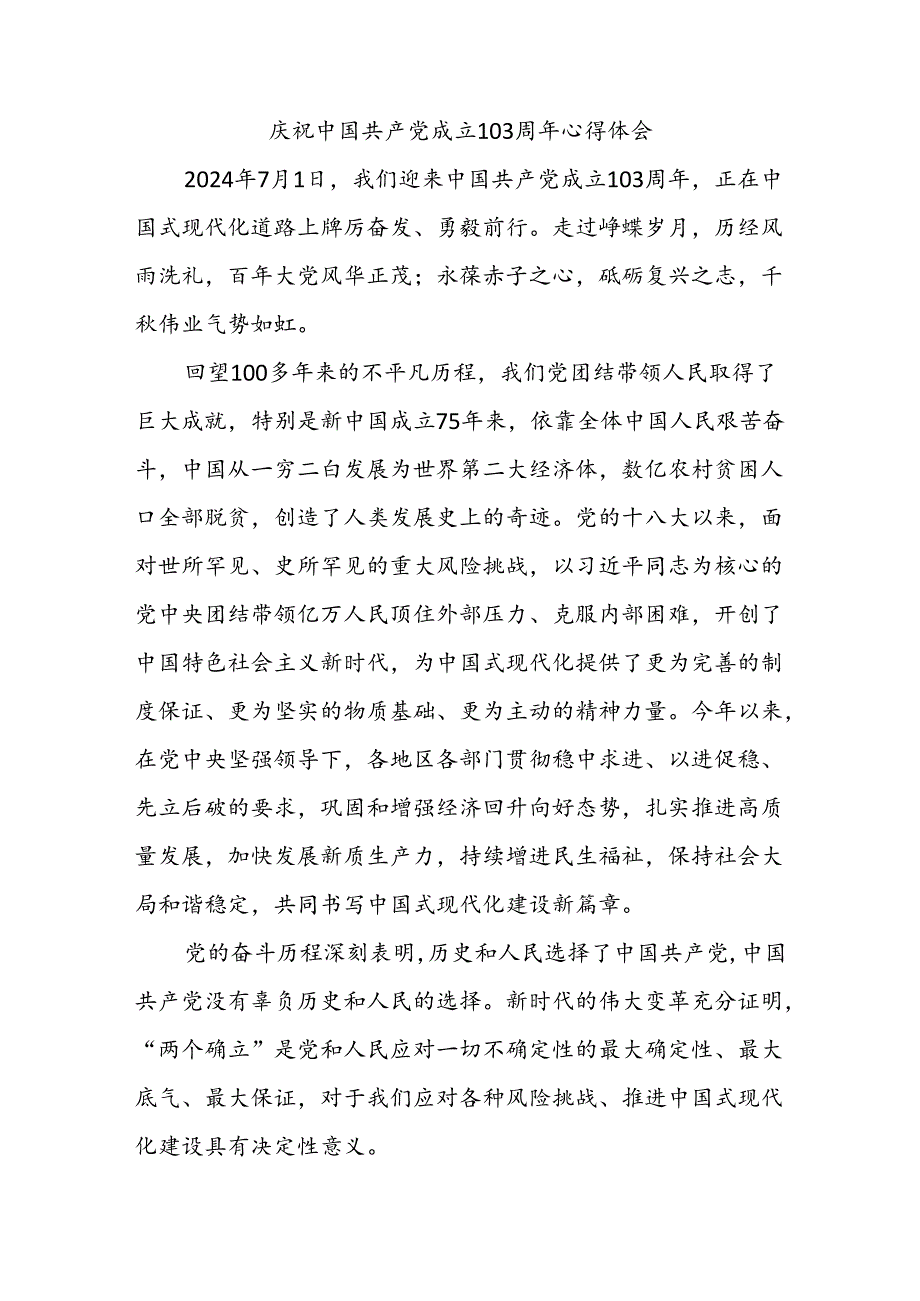 庆祝中国共产党成立103周年心得体会
2024年7月1日，我们迎来中国共产党成立103周年，正在中
国式现代化道路上牌厉奋发、勇毅前行。走过峥蝶岁月，历经风
雨洗礼，百年大党风华正茂；永葆赤子之心，砥砺复兴之志，千
秋伟业气势如虹。
回望100多年来的不平凡历程，我们党团结带领人民取得了
巨大成就，特别是新中国成立75年来，依靠全体中国人民艰苦奋
斗，中国从一穷二白发展为世界第二大经济体，数亿农村贫困人
口全部脱贫，创造了人类发展史上的奇迹。党的十八大以来，面
对世所罕见、史所罕见的重大风险挑战，以习近平同志为核心的
党中央团结带领亿万人民顶住外部压力、克服内部困难，开创了
中国特色社会主义新时代，为中国式现代化提供了更为完善的制
度保证、更为坚实的物质基础、更为主动的精神力量。今年以来，
在党中央坚强领导下，各地区各部门贯彻稳中求进、以进促稳、
先立后破的要求，巩固和增强经济回升向好态势，扎实推进高质
量发展，加快发展新质生产力，持续增进民生福祉，保持社会大
局和谐稳定，共同书写中国式现代化建设新篇章。
党的奋斗历程深刻表明,历史和人民选择了中国共产党,中国
共产党没有辜负历史和人民的选择。新时代的伟大变革充分证明，
“两个确立”是党和人民应对一切不确定性的最大确定性、最大
底气、最大保证，对于我们应对各种风险挑战、推进中国式现代
化建设具有决定性意义。